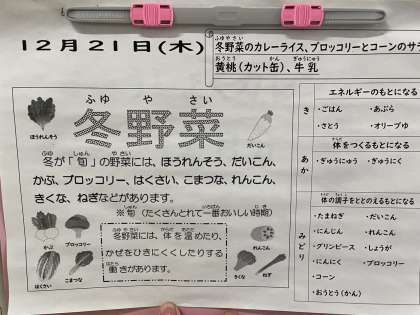 12月21日(木)
冬野菜のカレーライス、ブロッコリーとコーンのサラ
黄桃(カット缶)、牛乳
冬野菜
ふゆ や さい
ほうれんそう
だいこん
冬が「旬」の野菜には、ほうれんそう、だいこん、
かぶ、ブロッコリー、はくさい、こまつな、れんこん、
きくな、ねぎなどがあります。
※旬(たくさんとれて一番おいしい時期)
かぶ
ブロッコリー
はくさい
こまつな
冬野菜には、体を温めたり、
かぜをひきにくくしたりする
働きがあります。
れんこん
きくな
ねぎ
エネルギーのもとになる
き
・ごはん ・あぶら
・さとう ・オリーブゆ
体をつくるもとになる
あか
・ぎゅうにゅう ・ぎゅうにく
体の調子をととのえるもとになる
みどり
・たまねぎ ・だいこん
・にんじん ・れんこん
・グリンピース ・しょうが
・にんにく ・ブロッコリー
・コーン
・おうとう(かん)